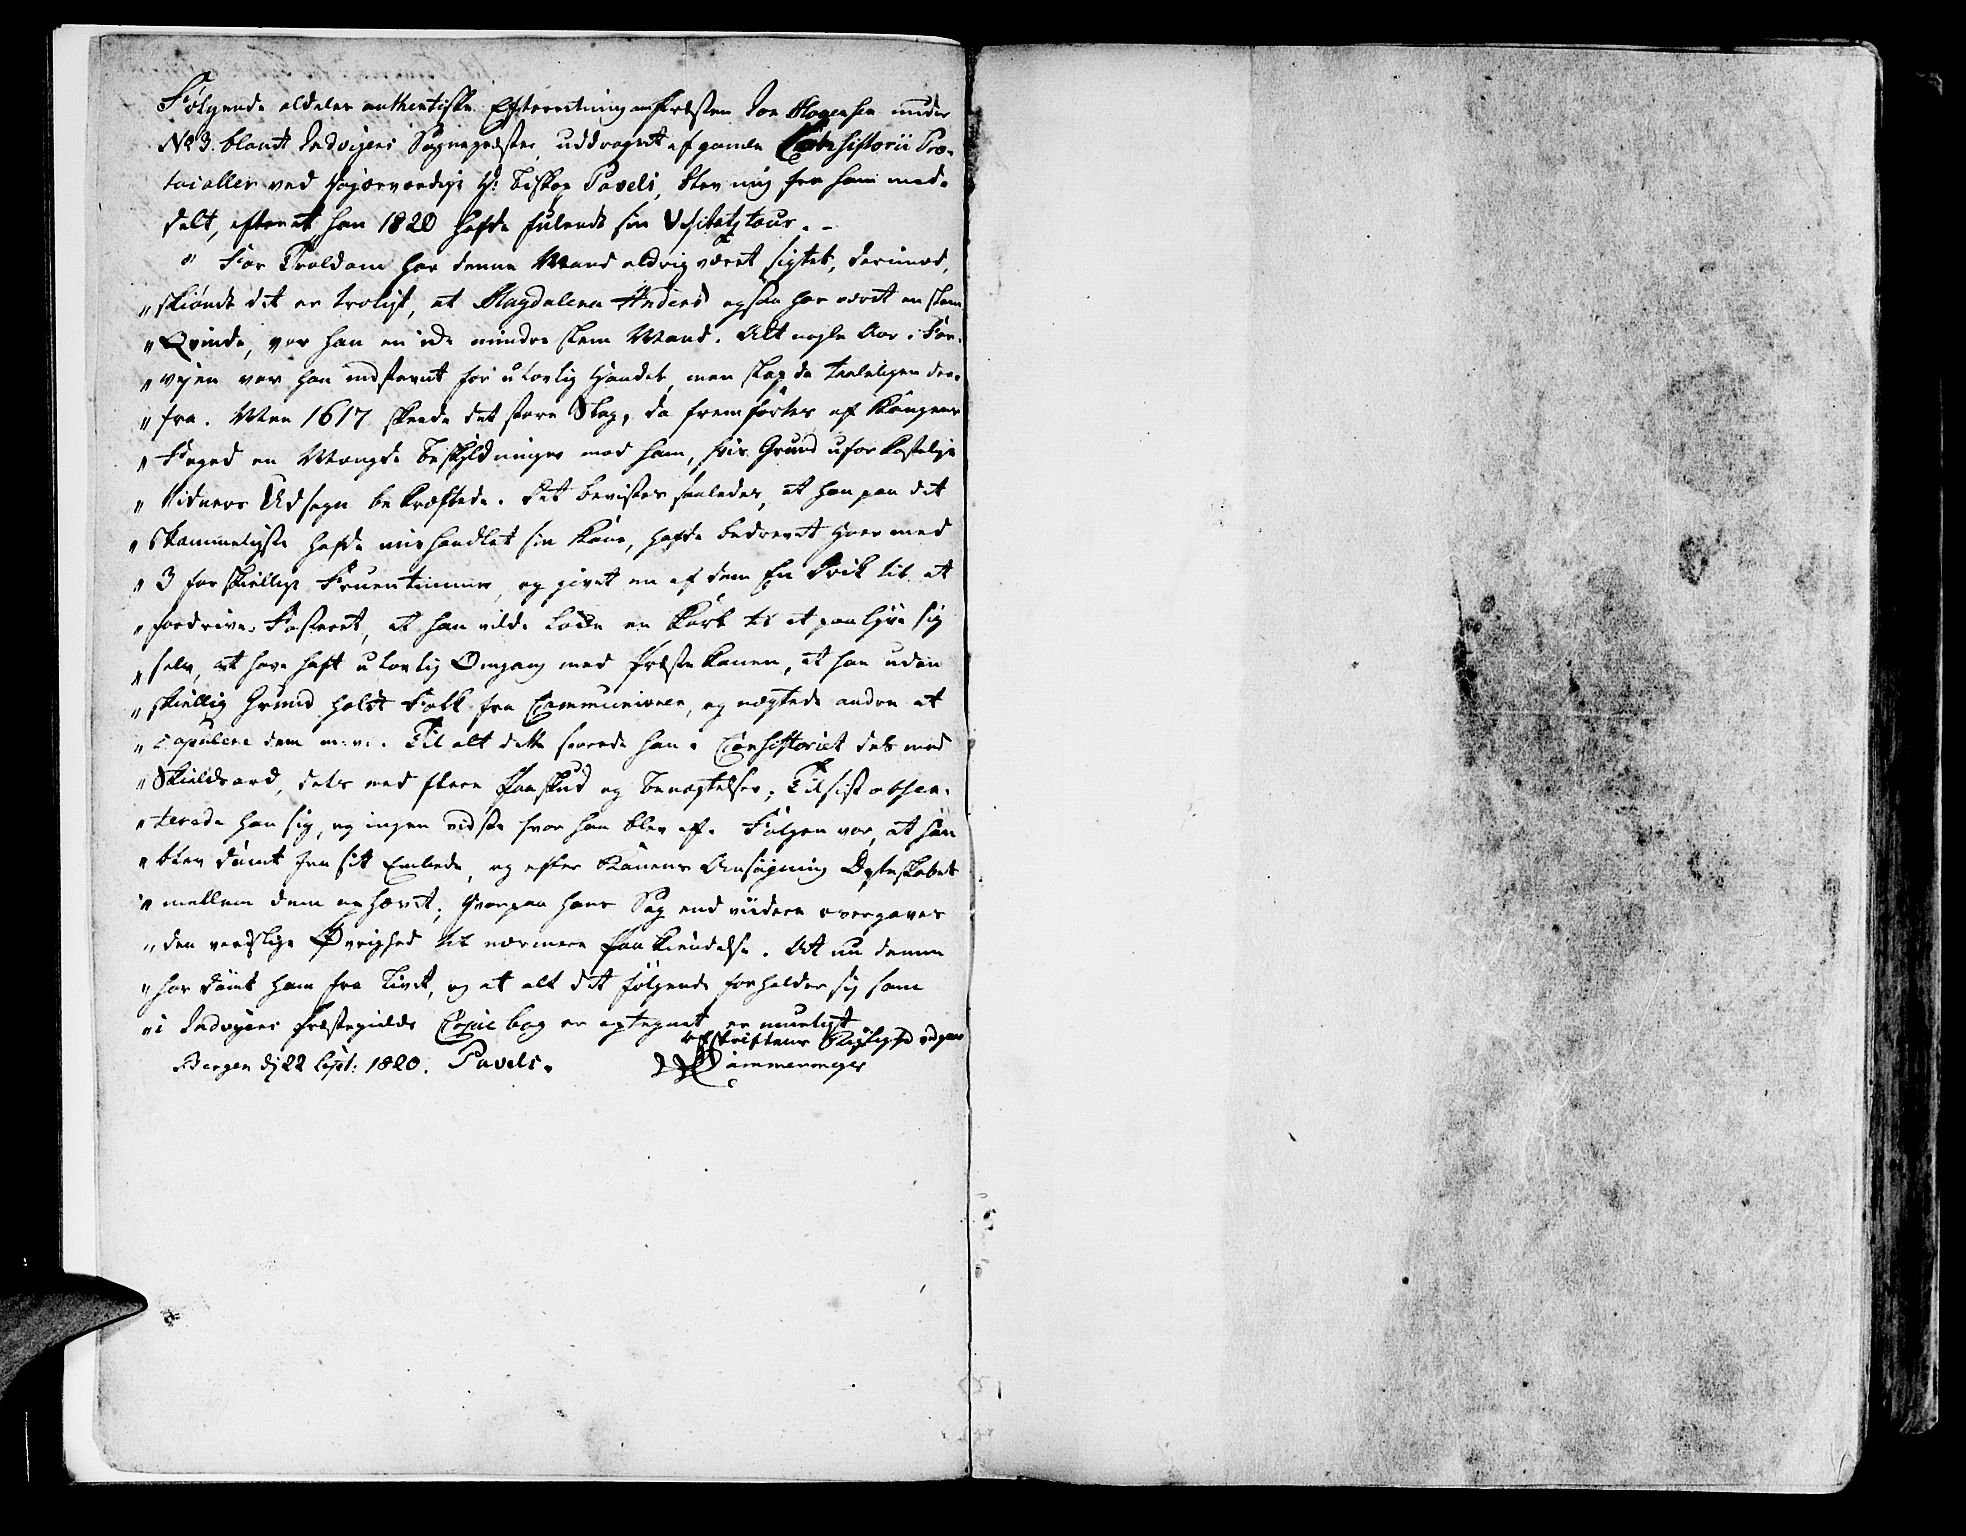 Følgende aldeles authentiske Efterretning om Præsten Jon Mogensen under
No 3. blandt Indvigens Sognepræster, uddraget af gamle Consistorii Pro-
tocoller ved Højærværdige Hr Biskop Pavels, blev mig fra ham med-
delt, efterat han 1820 hafde fulendt sin Visitatztour. -
" For Troldom har denne Mand aldrig været sigtet, derimod,
" skiøndt det er troligt, at Magdalena Anders også har været en slem
" Qvinde, var han en ikke mindre slem Mand. Alt nogle Aar i For-
" vejen var han indstævnt for ulovlig Handel, men slap da taaleligen der-
" fra. Men 1617 skeede det store Slag, da fremførtes af Kongens
" Foged en Mængde Beskyldninger mod ham, hvis Grund uforkastelige
" Vidners Udsagn bekræftede. Det bevistes saaledes, at han paa det
" Skammeligste hafde mishandlet sin Kone, hafde bedrevet Hoer med
" 3 forskiellige Fruentimmer, og givet en af dem En Drik til at
" fordrive Fosteret, at han vilde en Karl til at paalyve sig
" selv, at have haft ulovlig Omgang med Præstekonen, at han uden
" skiellig Grund holdt Folk fra Communionen, og nægtede andre at
" copulere dem m: v: . Til alt dette svarede han i Consistoriet dels med
" Skieldsord, dels med flere Paaskud og Benægtelser; Tilsidst absen-
" terede han sig, og ingen vidste hvor han blev af. Følgen var, at han
" blev dømt fra sit Embede, og efter Konens Ansøgning Ægteskabet
" mellem dem ophævet; hvorpaa hans Sag end videre overgaves
" den verdslige Øvrighed til nærmere Paakiendelse. At nu denne
" har dømt ham fra Livet, og at alt det følgende forholder sig som
" i Indvigens Præstegields Copie bog er optegnet er mueligt
Afskriftens Rigtighed
Bergen dj 22 Sept: 1820. Pavels.